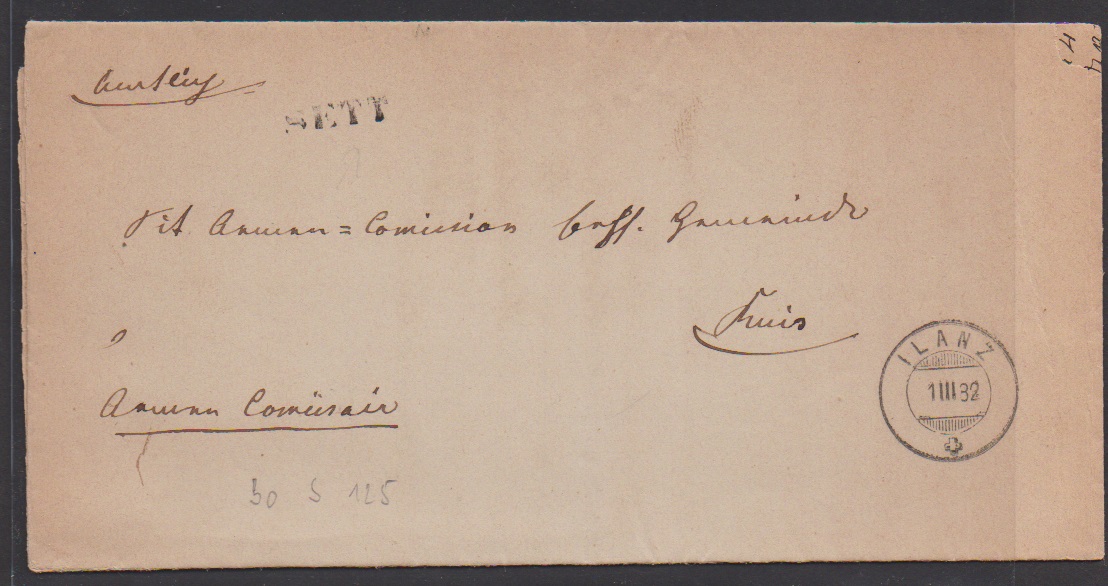 Amtlich
SETT
Tit. Armen=Comission lobl. Gemeinde
Ruis
Armen Comissair
ILANZ
1 III 82
30 S 125